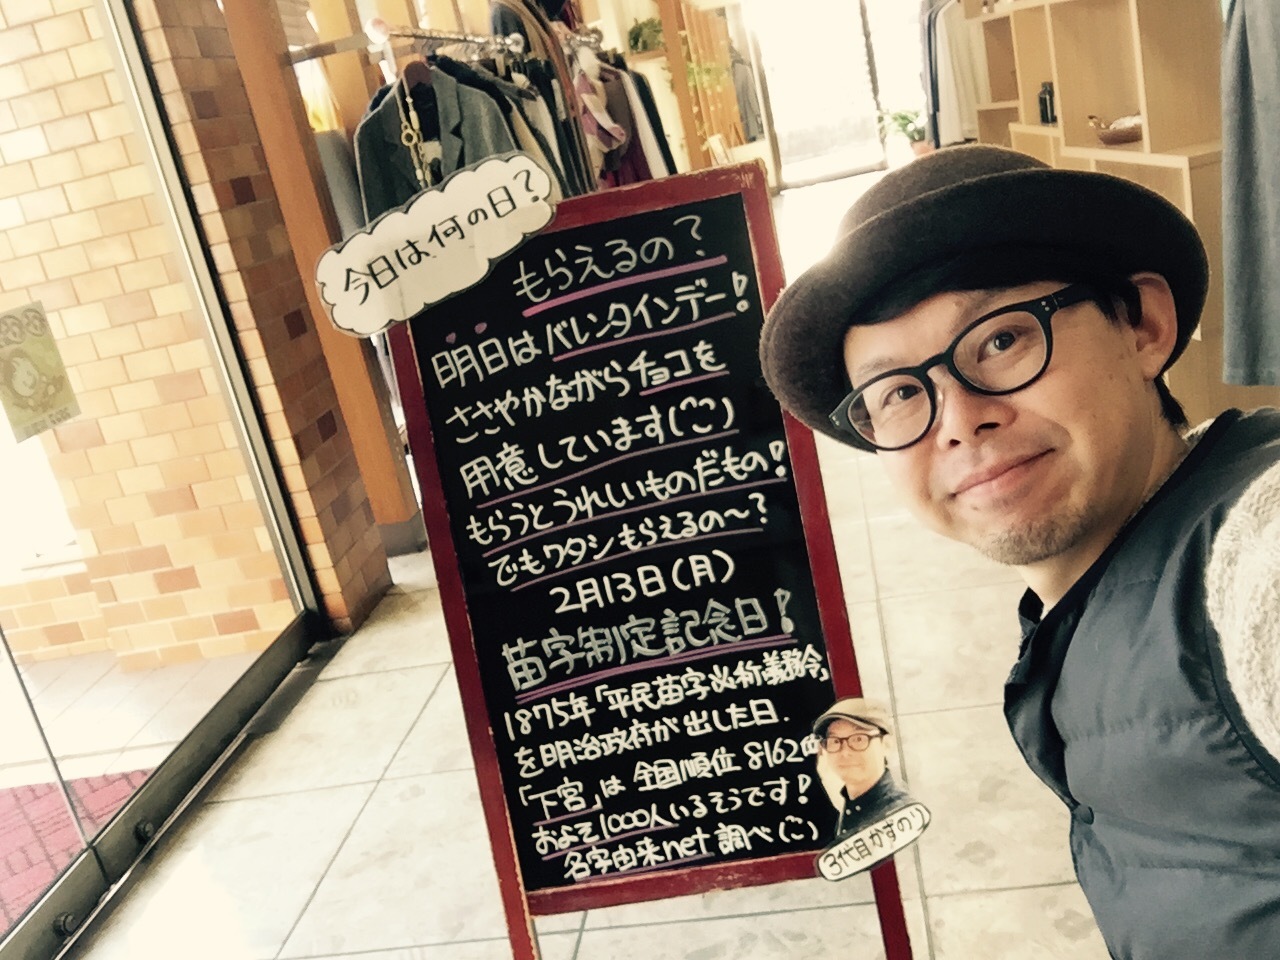 今日は何の日?
もらえるの?
明日はバレンタインデー!
ささやかながらチョコを
用意しています(^こ)
もらうとうれしいものだもの!
でもワタシもらえるの〜?
2月13日(月)
苗字制定記念日!
1875年「平民苗字必称義務令」
を明治政府が出した日.
「下宮」は全国順位8162位
およそ1000人いるそうです!
名字由来net調べ(^こ)
3代目かずのり